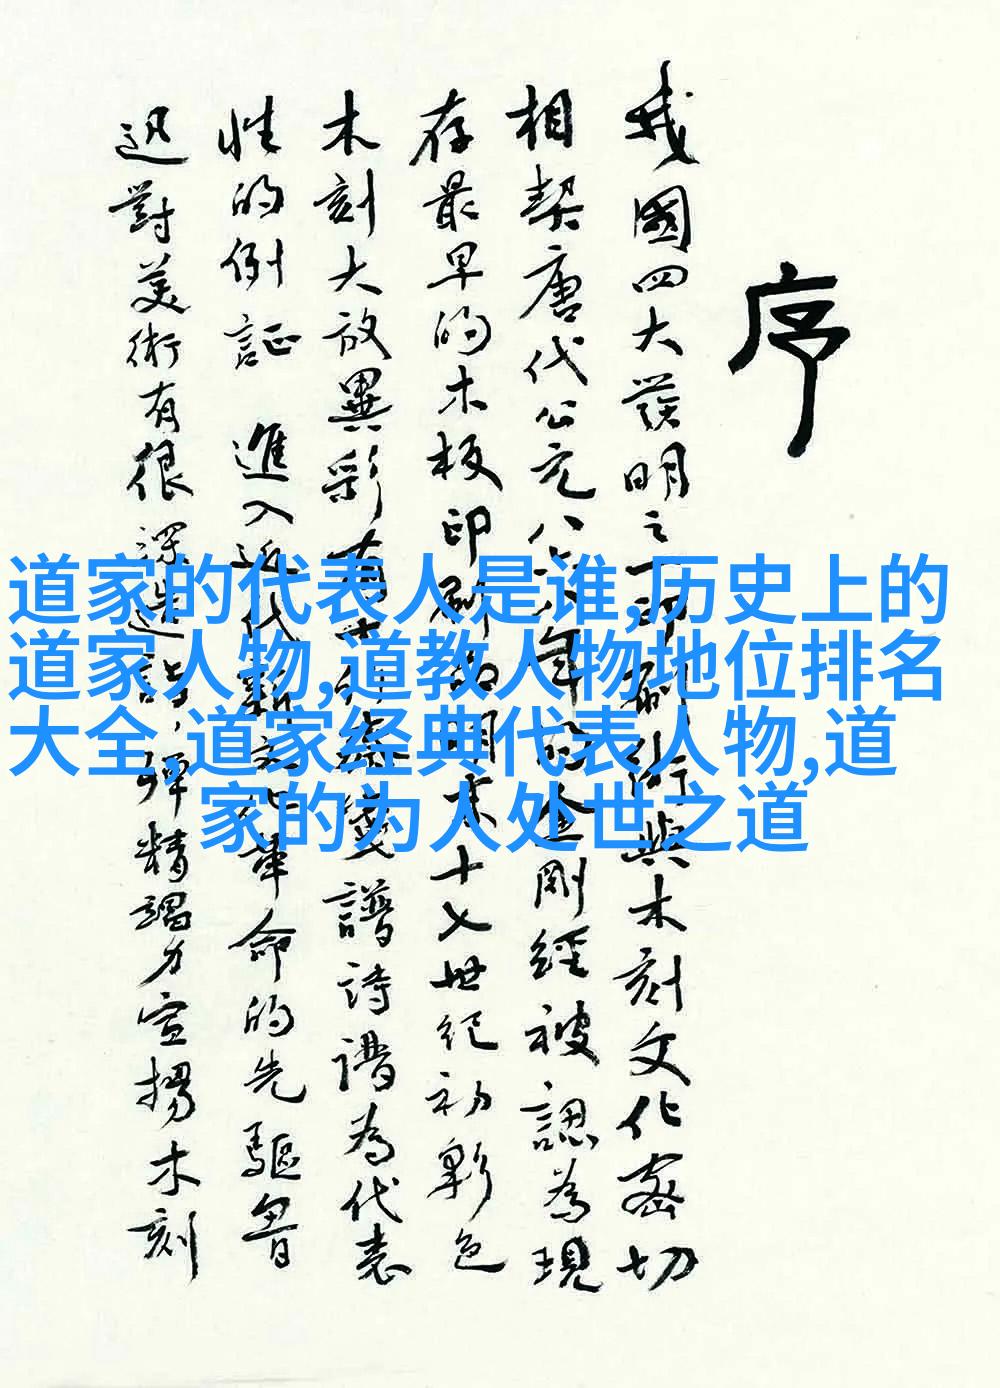 序
我國四大發明之一印刷術與木刻文化密切
相契唐代公元八六八年的金剛經被認為現
存最早的木板印刷品明末十七世紀初彩色
木刻大放異彩有十竹齋箋譜詩譜為代表
性的例証 進入近代新文化革命的先驅魯
迅對美術有很深造詣，殫精竭力宣揚木刻
道家的代表人是谁,历史上的
道家人物,道教人物地位排名
大全,道家经典代表人物,道
家的为人处世之道